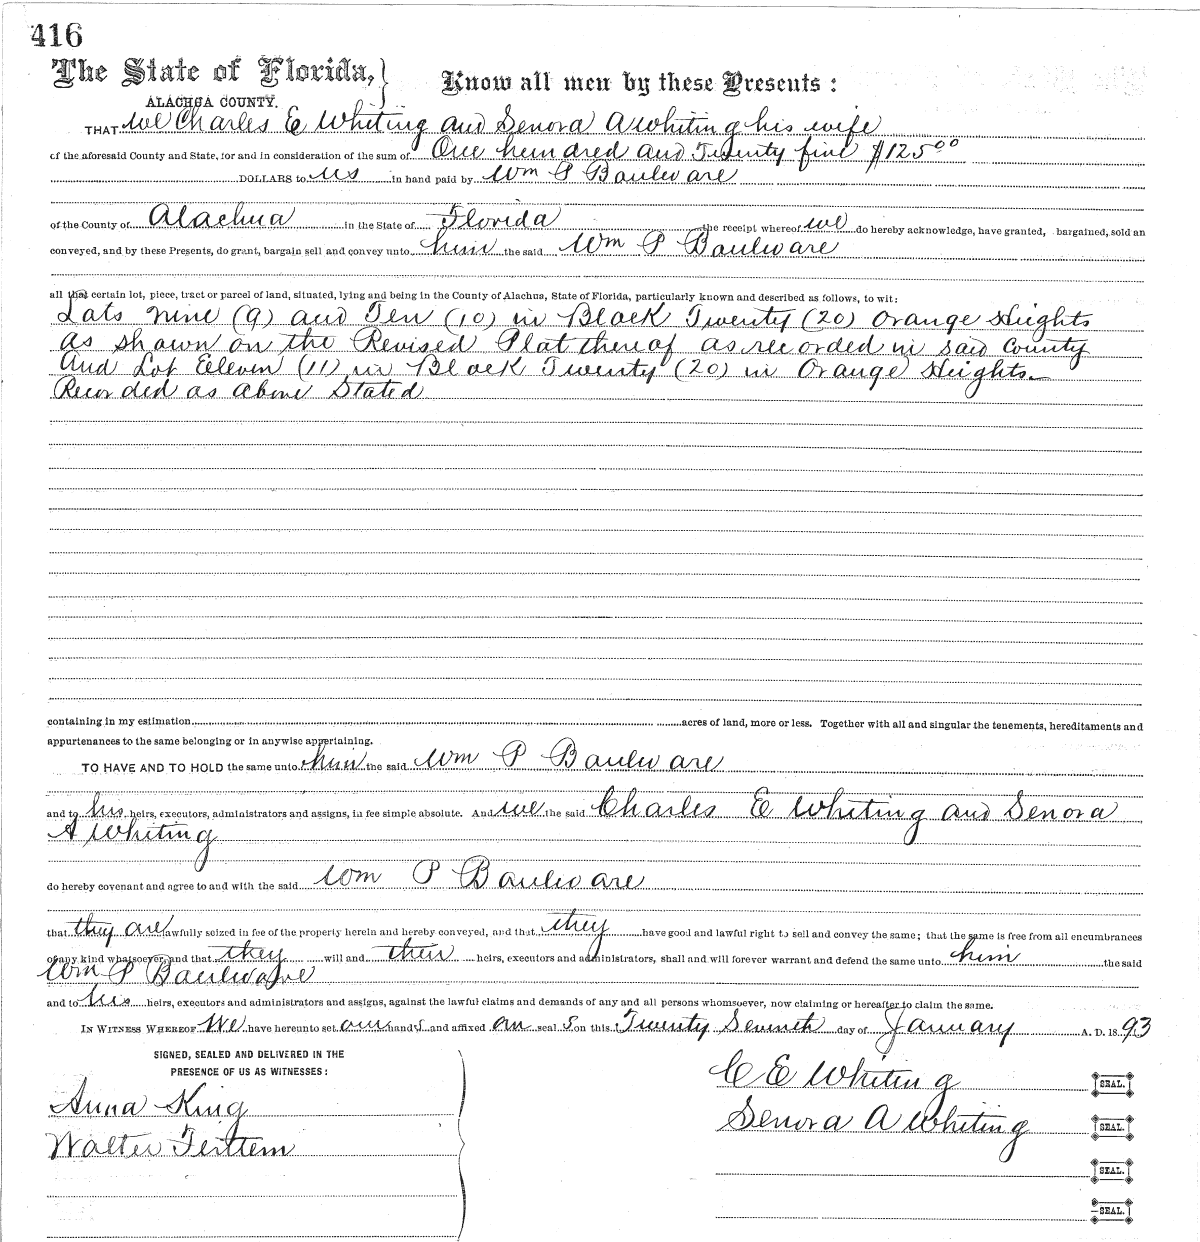 416
The State of Florida,
ALACHUA COUNTY.
Know all men by these Presents:
THAT We Charles E Whiting and Senora A Whiting his wife
of the aforesaid County and State, for and in consideration of the sum of One hundred and Twenty five $125.00
DOLLARS to us in hand paid by Wm P Baulware
of the County of Alachua in the State of Florida the receipt whereof we do hereby acknowledge, have granted, bargained, sold an
conveyed, and by these Presents, do grant, bargain sell and convey unto him the said Wm P Baulware
all that certain lot, piece, tract or parcel of land, situated, lying and being in the County of Alachua, State of Florida, particularly known and described as follows, to wit:
Lots nine (9) and Ten (10) in Block Twenty (20) Orange Heights
as shown on the Revised Plat thereof as recorded in said County
And Lot Eleven (11) in Block Twenty (20) in Orange Heights
Recorded as above Stated
containing in my estimation acres of land, more or less. Together with all and singular the tenements, hereditaments and
appurtenances to the same belonging or in anywise appertaining.
TO HAVE AND TO HOLD the same unto him the said Wm P Baulware
and to his heirs, executors, administrators and assigns, in fee simple absolute. And we the said Charles E Whiting and Senora
A Whiting
do hereby covenant and agree to and with the said Wm P Baulware
that they are lawfully seized in fee of the property herein and hereby conveyed, and that they have good and lawful right to sell and convey the same; that the same is free from all encumbrances
of any kind whatsoever, and that they will and their heirs, executors and administrators, shall and will forever warrant and defend the same unto him the said
Wm P Baulware
and to his heirs, executors and administrators and assigns, against the lawful claims and demands of any and all persons whomsoever, now claiming or hereafter to claim the same.
IN WITNESS WHEREOF We have hereunto set our hands and affixed our seals on this Twenty Seventh day of January A. D. 1893
SIGNED, SEALED AND DELIVERED IN THE
PRESENCE OF US AS WITNESSES:
C E Whiting SEAL.
Anna King
Senora A Whiting SEAL.
Walter
SEAL.
SEAL.